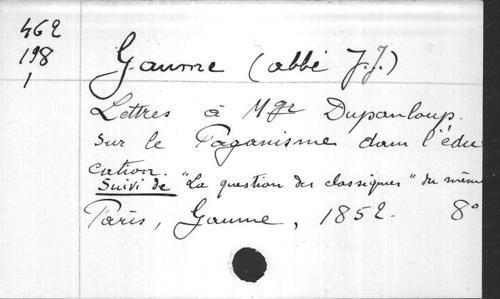 462
198
1
Gaume (abbé J.J.)
Lettres à Mgr Dupanloup.
sur le Paganisme dans l'édu
cation.
Suivi de "La question des classiques" du même
Paris, Gaume, 1852. 8°